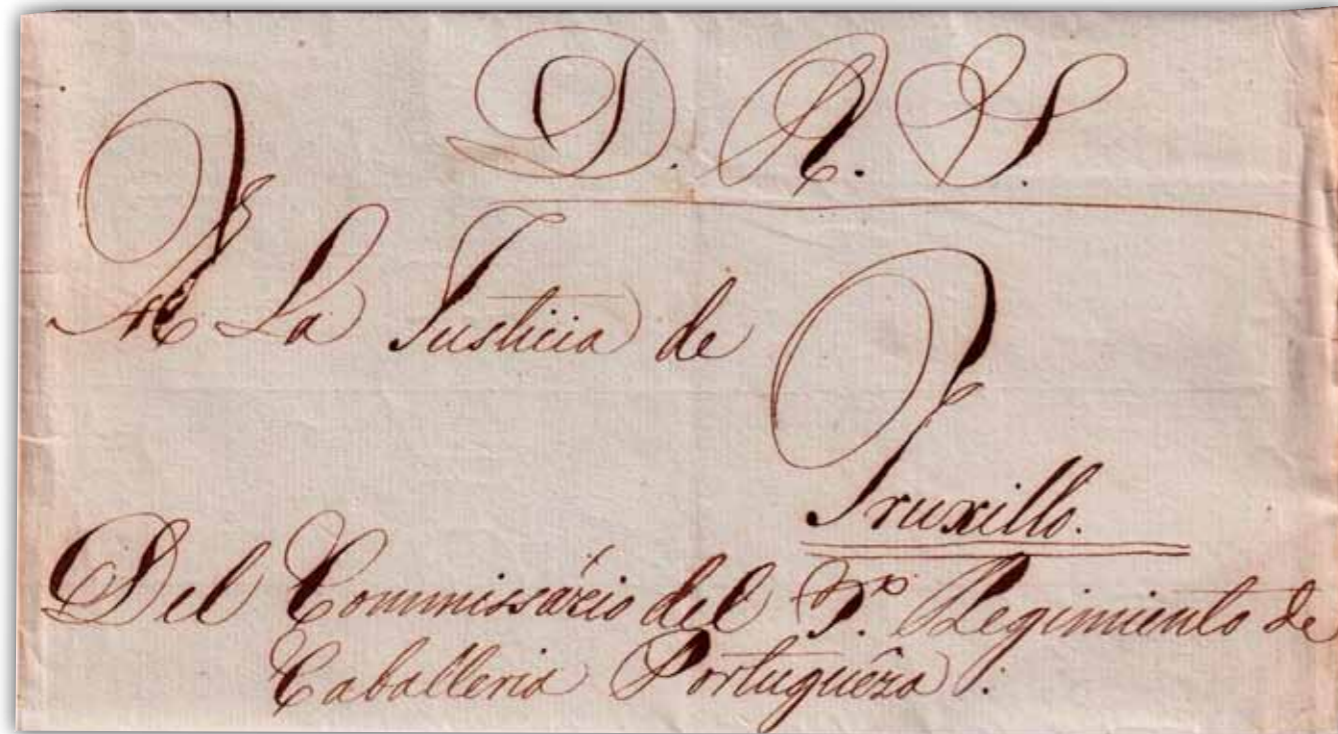 D. R. S.
A La Justicia de
Truxillo.
Del Commissário del Regimiento de
Caballeria Portuguêza.